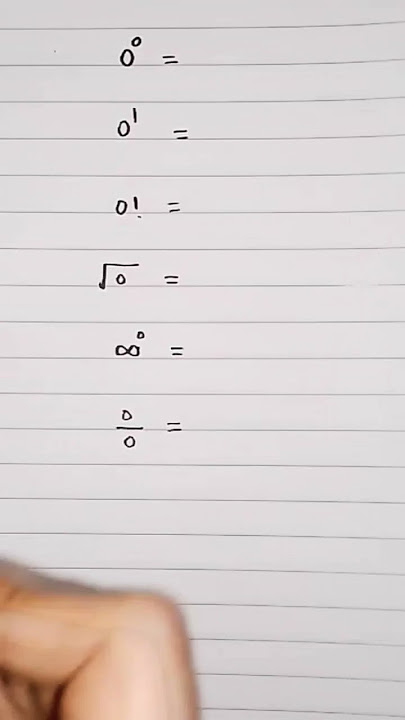 0⁰ =
0¹ =
0! =
√0 =
∞⁰ =
0/0 =